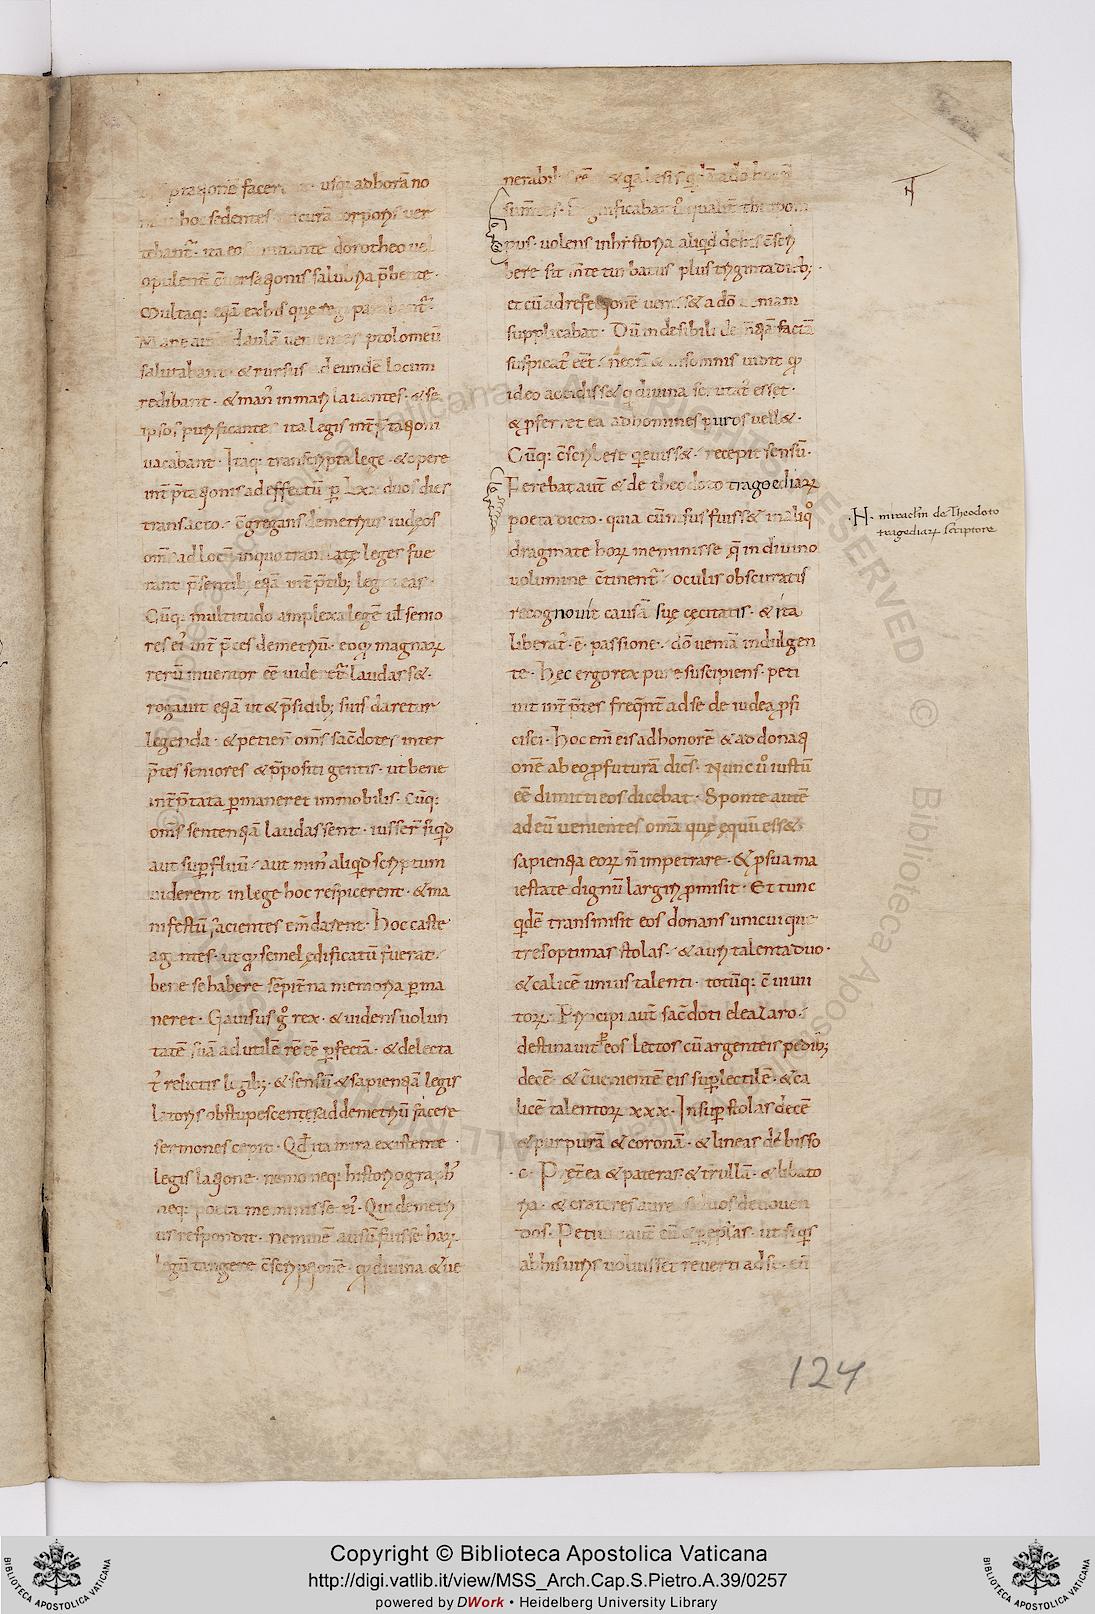 facer usq; ad horā no
hoc sedentes curā corporis ver
tebant̄. ita eos dorotheo vel
opulentē c̄versationis salubria p̄bente.
Multaq; eq̄a ex his quę regi parabant̄.
Mane aut ad aulā venientes ptolomeū
salutabant. & rursus ad eundē locum
redibant. & man' in mari lavantes. & se
ipsos purificantes ita legis int̄p̄tationi
vacabant. Itaq; transcripta lege. & opere
int̄p̄tationis ad effectū p̄ lxx duos dies
transacto. c̄gregans demetrius iudęos
om̄s ad locū in quo translatę leges fue
rant p̄sentib; eq̄a int̄p̄tib; leg eas.
Cūq; multitudo amplexa legē ul̄ senio
res ei' int̄p̄tes demetriū. eo qđ magnarꝝ
rerū inventor eē videret̄ laudass&.
rogavit eq̄a ut & p̄sidib; suis daretur
legenda. & petier̄ om̄s sac̄dotes inter
p̄tes seniores & p̄positi gentis. ut bene
int̄p̄tata p̄maneret immobilis. Cūq;
om̄s sententiā laudassent. iusser̄ siqđ
aut sup̄fluū. aut min' aliqđ scriptum
viderent in lege hoc respicerent. & ma
nifestū facientes em̄darent. Hoc caste
agentes. ut qđ semel ędificatū fuerat.
bene se habere sēpit̄na memoria p̄ma
neret. Gavisus gº rex. & videns volun
tatē suā ad utilē rē eē p̄fectā. & delecta
t' relictis legib;. & sensū & sapientiā legis
latoris obstupescentes ad demetriū facere
sermones cepit. Qđ ita mira existente
legis latione. nemo neq; historiograph'
neq; poeta meminisse ei'. Qui demetri
us respondit. neminē ausū fuisse harꝝ
legū tangere c̄scriptionē. qđ divina & ve
nerabil
sum̄tes. Significabat
pus. volens in historia aliqđ de his c̄scri
bere sit m̄te turbatus plus triginta dieb;.
et cū ad refectionē veniss& a dō
supplicabat. Dū inde sibi
suspicat' eēt. somnis vidit qđ
ideo accidiss& qđ divina scrutat' esset.
& p̄ferret ea ad homines puros vell&.
Cūq; c̄scribere qieviss&. recepit sensū.
Ferebat aut̄ & de theodoto tragoediarꝝ
poeta dicto. quia cū visus fuiss& in aliqº
dragmate horꝝ meminisse q̄ in divino
volumine c̄tinent̄ oculis obscuratis
recognovit causā suę cęcitatis. & ita
liberat' ē passione. dō veniā indulgen
te. Hęc ergo rex pure suscipiens. peti
vit int̄p̄tes freqn̄t ad se de iudęa p̄fi
cisci. Hoc em̄ eis ad honorē & ad donati
onē ab eo p̄futurā dic̄s. Nunc vº iustū
eē dimitti eos dicebat. Sponte autē
ad eū venientes om̄a quę ęquū ess&
sapientia eorꝝ n̄ impetrare. & p̄ sua ma
iestate dignū largiri p̄misit. Et tunc
qđē transmisit eos donans unicuique
tres optimas stolas. & auri talenta duo.
& calicē unius talenti. totūq; c̄vivii
torꝝ. Principi aut̄ sac̄doti eleazaro.
destinavit p̄ eos lectos cū argenteis pedib;
decē & c̄venientē eis sup̄lectilē. & ca
licē talentorꝝ xxx. Insup̄ stolas decē
& purpurā & coronā. & lineas de bisso
.c. Pręt̄ea & pateras. & trullā. & libato
ria. & crateres aure duos devoven
dos. Petiv aut̄ eū & p̄ ep̄las. ut siqs
ab his viris voluisset reverti ad se. eū
.H. miraclm̄ de Theodoto
tragediarꝝ scriptore
124
Copyright © Biblioteca Apostolica Vaticana
http://digi.vatlib.it/view/MSS_Arch.Cap.S.Pietro.A.39/0257
powered by DWork • Heidelberg University Library